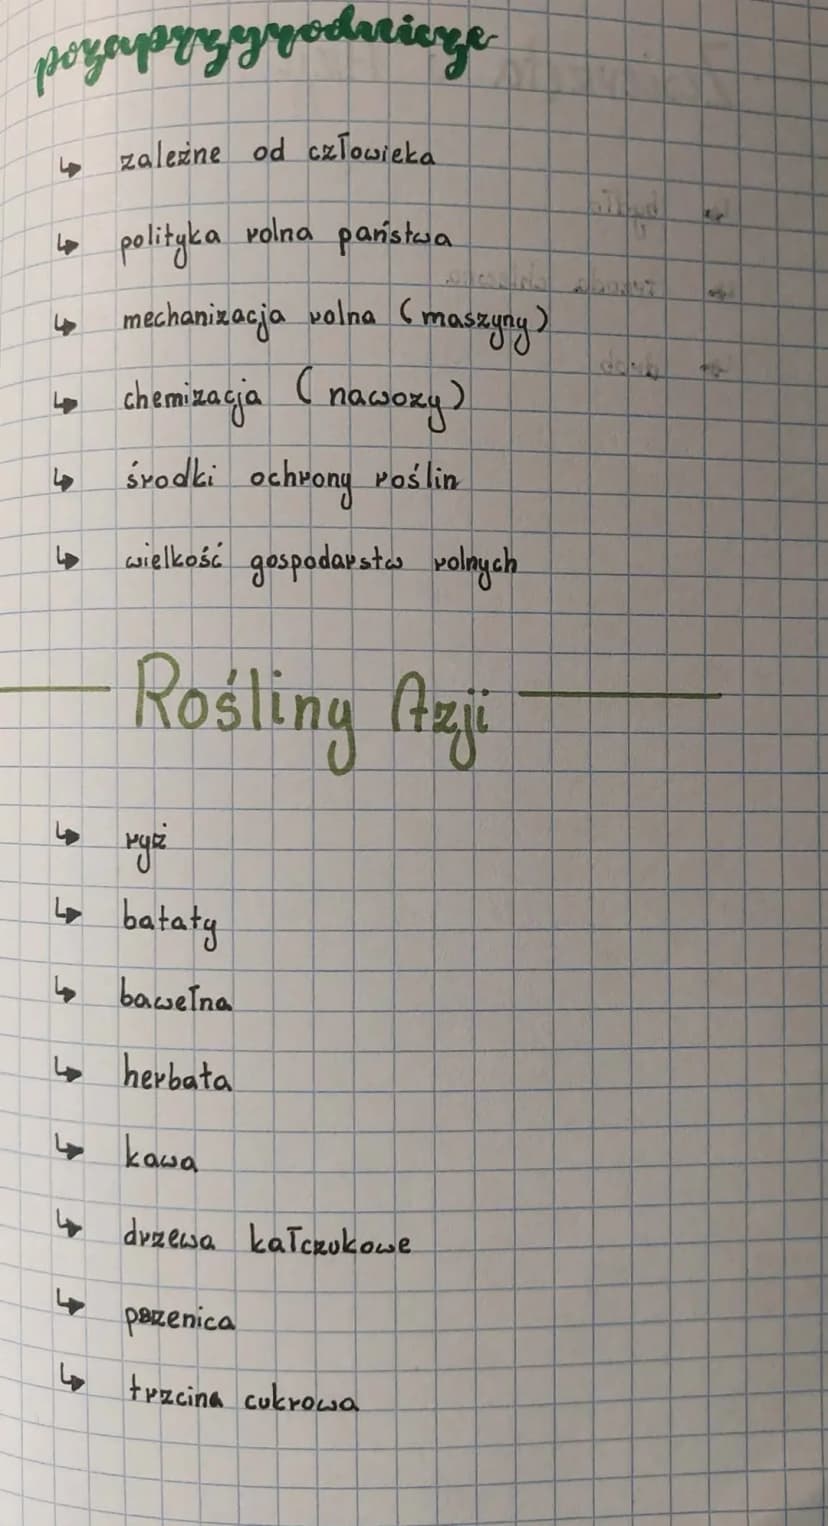 pozaprzyrodnicze
↳ zależne od człowieka
↳ polityka rolna państwa
↳ mechanizacja rolna (maszyny)
↳ chemizacja (nawozy)
↳ środki ochrony roślin
↳ wielkość gospodarstw rolnych
Rośliny Azji
↳ ryż
↳ bataty
↳ bawełna
↳ herbata
↳ kawa
↳ drzewa kałczukowe
↳ pszenica
↳ trzcina cukrowa